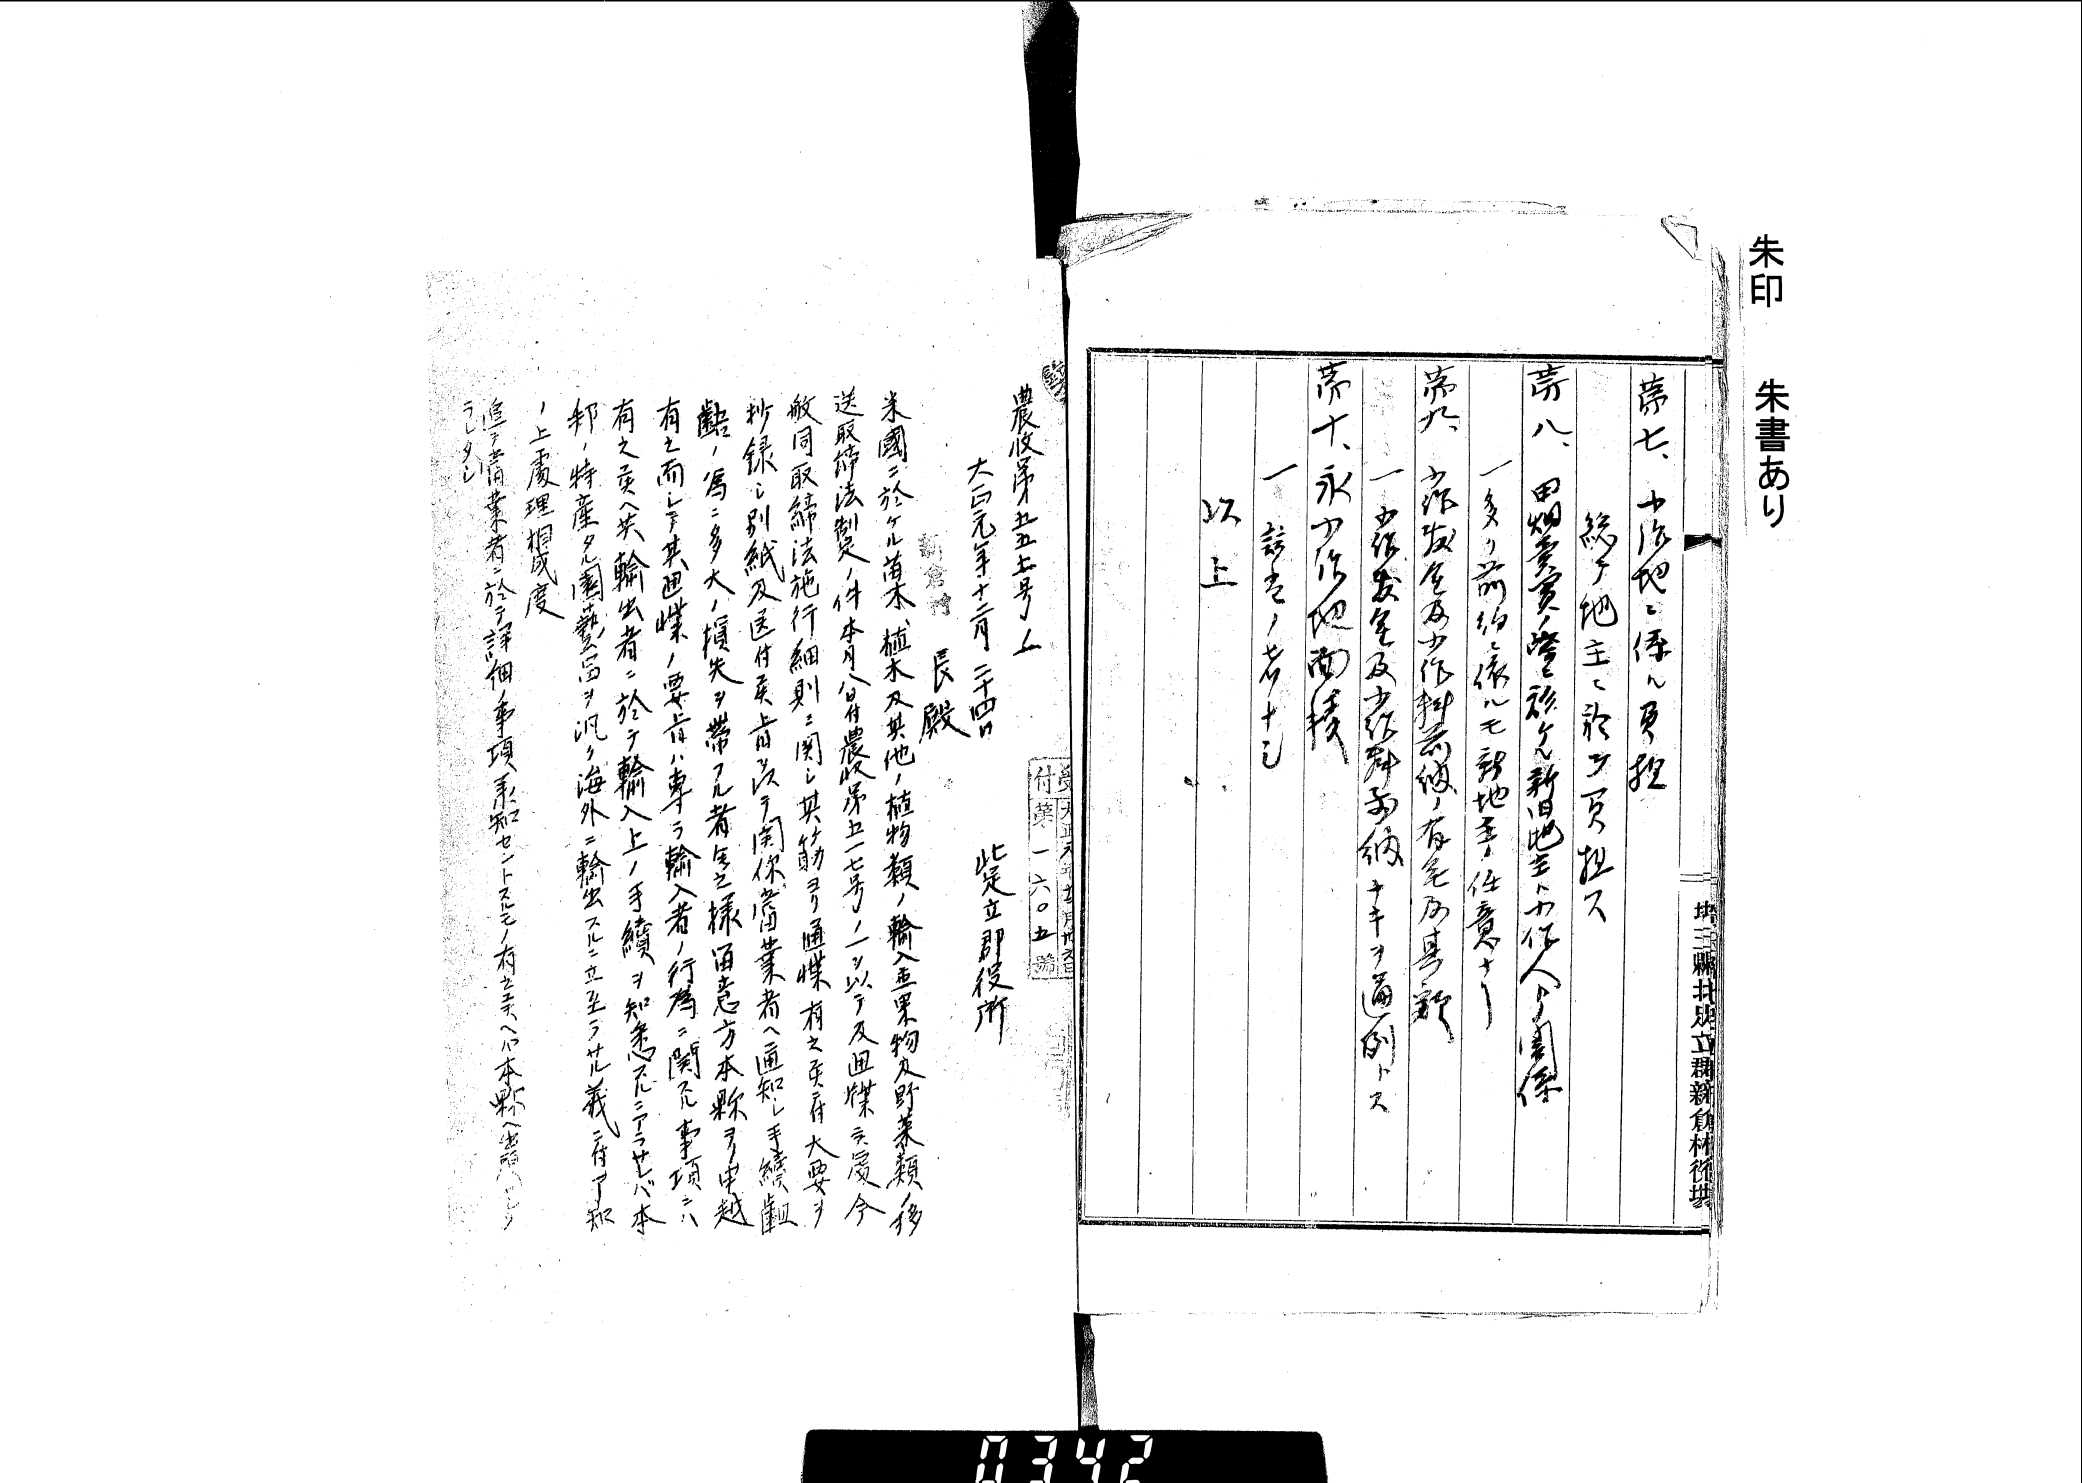 朱印 朱書あり
第七、小作地ニ係ル負担
総テ地主ニ於テ負担ス
第八、田畑売買ノ際ニ於ケル新旧地主ト小作人トノ関係
一多クハ前約ニ依ルモ新地主ノ任意ナリ
第九、小作敷金及小作料前納ノ有無及其額
一小作敷金及小作料前納ナキヲ通例トス
第十、永小作地面積
一該当ノ者ナシ
以上
埼玉縣北足立郡新倉村役場
農收第五五七号ノ一
大正元年十二月二十四日
北足立郡役所
新倉村長殿
受付 大正元年 第一六〇五號
米國ニ於ケル苗木、植木及其他ノ植物類ノ輸入並果物及野菜類ノ移
送取締法制定ノ件本月八日付農收第五一七号ノ一ヲ以テ及通牒候處今
般同取締法施行細則ニ関シ其筋ヨリ通牒有之候ニ付大要ヲ
抄録シ別紙及送付候ニ付以テ関係當業者ヘ通知シ手続齟
齬ノ為ニ多大ノ損失ヲ帯フル者無之様留意方本縣ヨリ申越
有之而シテ其通牒ノ要旨ハ専ラ輸入者ノ行為ニ関スル事項ニハ
有之候ヘ共輸出者ニ於テ輸入上ノ手續ヲ知悉スルニアラサレバ本
邦ノ特産タル園藝品ヲ汎ク海外ニ輸出スルニ立至ラサル義ニ付了知
ノ上處理相成度
追テ當業者ニ於テ詳細ノ事項承知セントスルモノ有之候ヘバ本縣ヘ
ラレタシ
0342